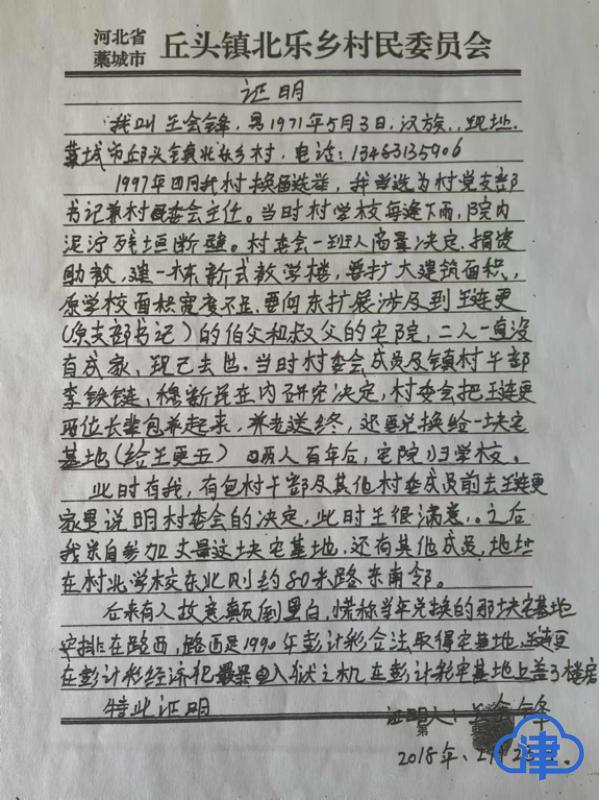 河北省
藁城市
丘头镇北乐乡村民委员会
证明
我叫王会锋，男1971年5月3日，汉族，现地址，
藁城市邱头镇北乐乡村，电话：13463135906
1997年四月我村换届选举，我当选为村党支部
书记兼村委会主任。当时村学校每逢下雨，院内
泥泞残垣断壁。村委会一班人商量决定，捐资
助教，建一栋新式教学楼，要扩大建筑面积，
原学校面积宽度不足，要向东扩展涉及到王连更
（原支部书记）的伯父和叔父的宅院，二人一直没
有成家，现已去世，当时村委会成员及镇村干部
李铁链、穆新民在内研究决定，村委会把王连更
两位长辈包养起来，养老送终，还要兑换给一块宅
基地（给王更五） 人百年后，宅院归学校。
此时有我，有包村干部及其他村委成员前去王连更
家里说明村委会的决定，此时王很满意。之后
我亲自参加丈量这块宅基地，还有其他成员，地址
在村北学校东北侧约80米路东南邻。
后来有人故意颠倒黑白，谎称当年兑换的那块宅基地
安排在路西，路西是1990年彭计彩合法取得宅基地，王连更
在彭计彩经济犯 入狱之机在彭计彩宅基地上盖了楼房
特此证明
证明人：王会锋
2018年、2月25日。
津